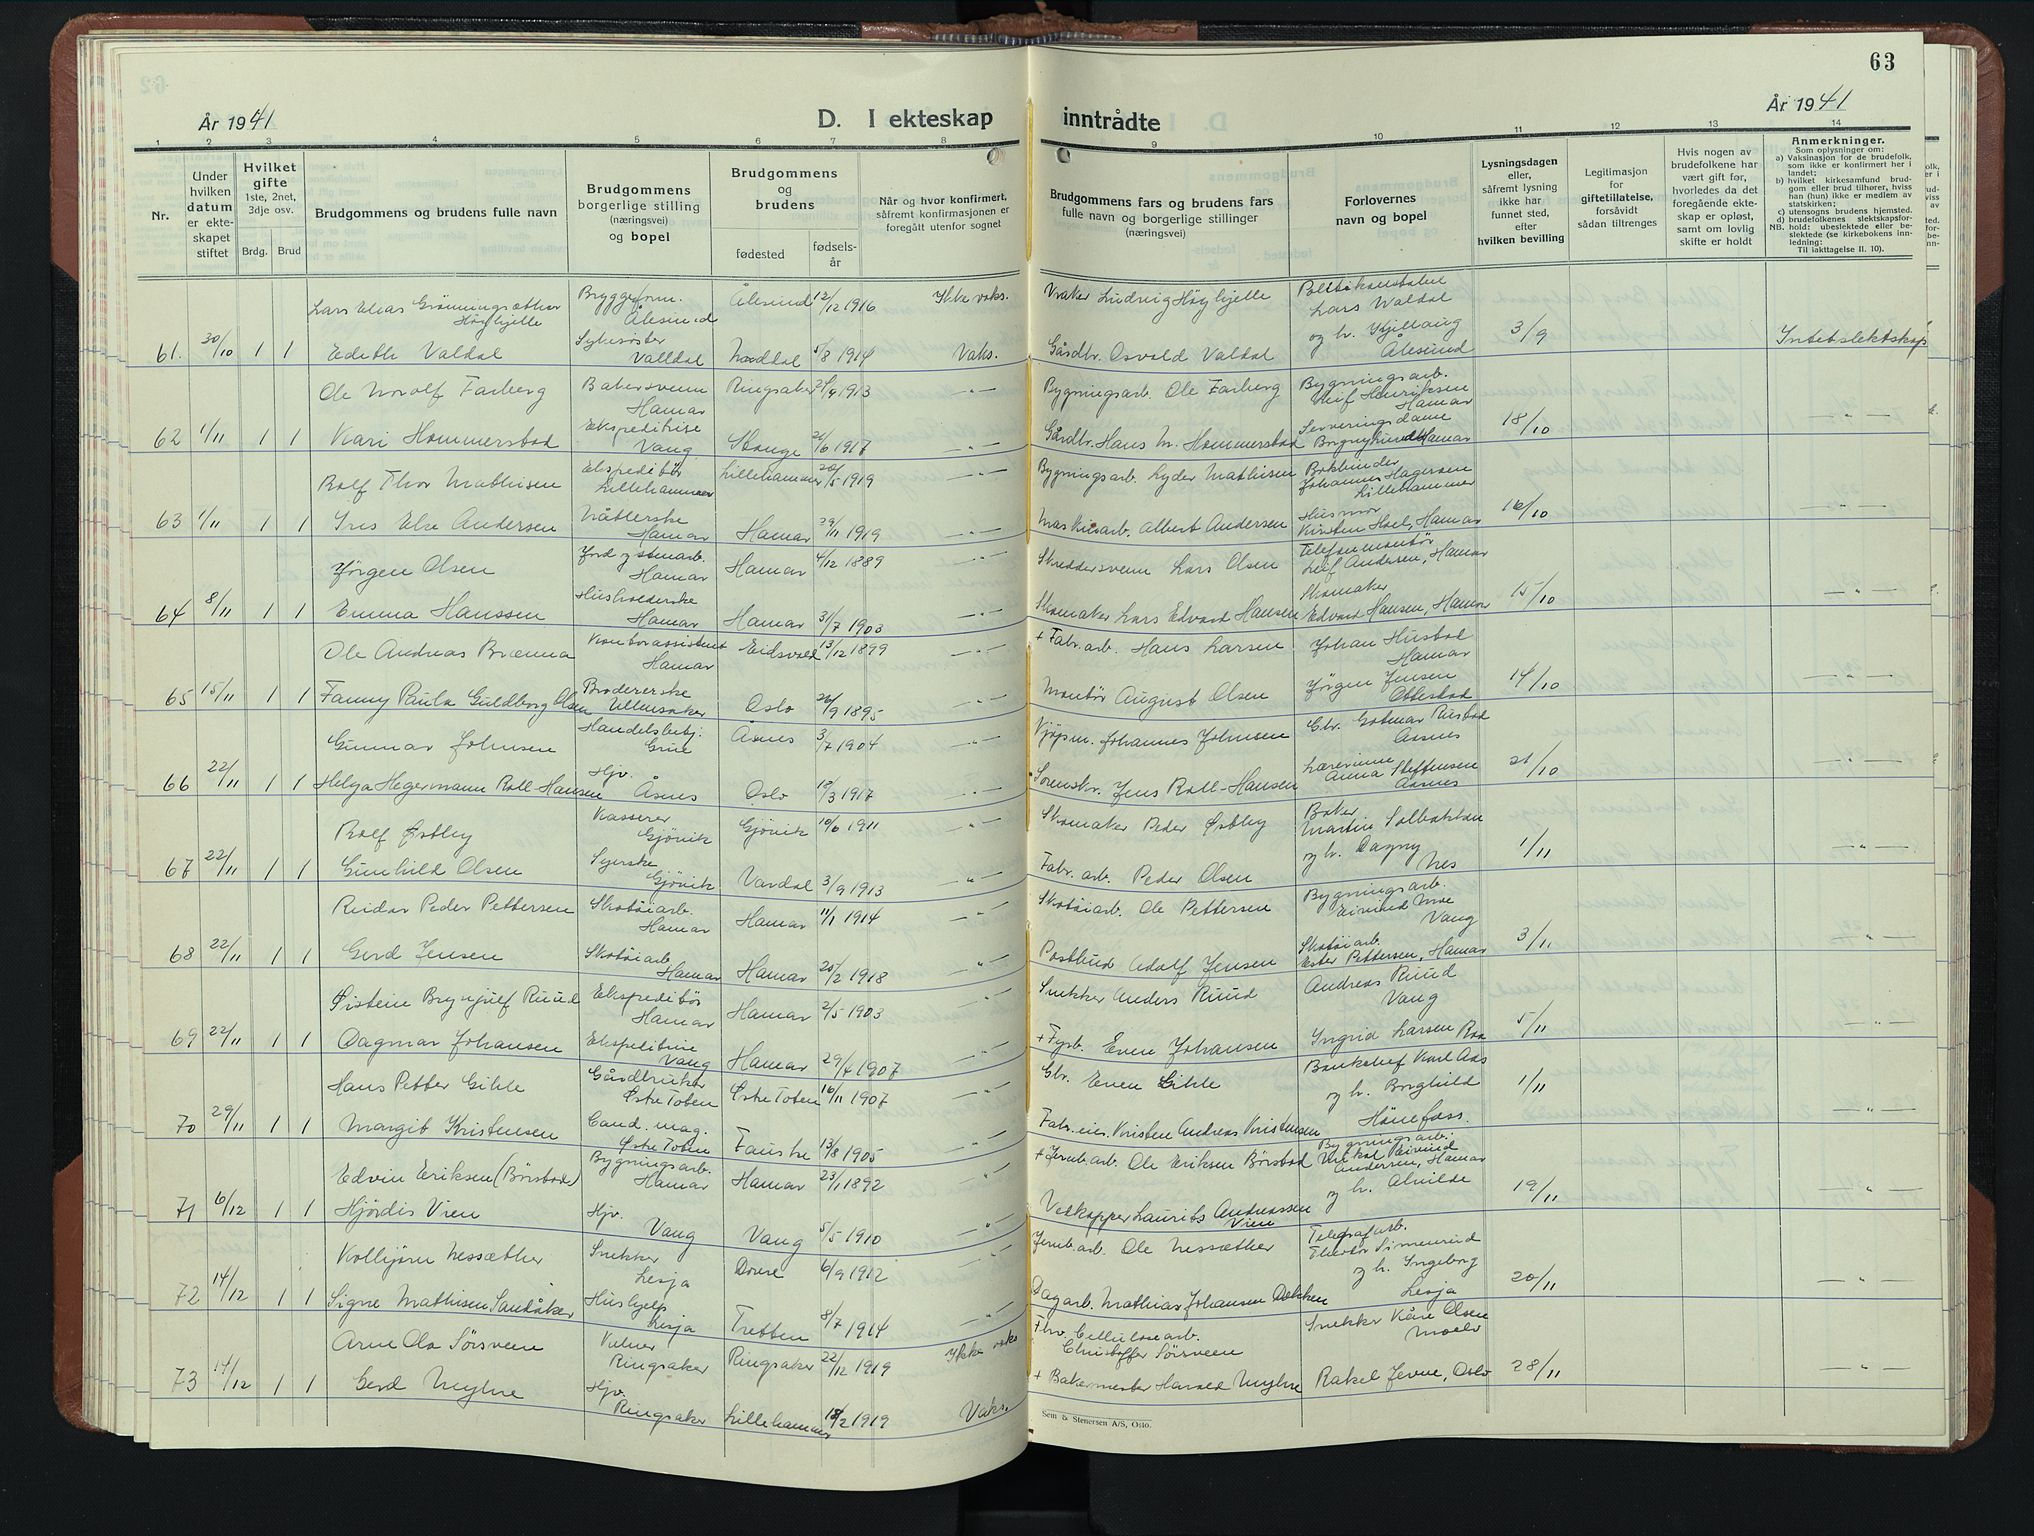 63
År 1941
D. I ekteskap inntrådte
År 1941
1 2 3 4 5 6 7 8 9 10 11 12 13 14
Nr.
Under hvilken datum er ekteskapet stiftet
Hvilket gifte 1ste, 2net, 3dje osv.
Brdg. Brud
Brudgommens og brudens fulle navn
Brudgommens borgerlige stilling (næringsvei) og bopel
Brudgommens og brudens
fødested
fødselsår
Når og hvor konfirmert, såfremt konfirmasjonen er foregått utenfor sognet
Brudgommens fars og brudens fars fulle navn og borgerlige stillinger (næringsvei)
Forlovernes navn og bopel
Lysningsdagen eller, såfremt lysning ikke har funnet sted, efter hvilken bevilling
Legitimasjon for giftetillatelse, forsåvidt sådan tiltrenges
Hvis nogen av brudefolkene har vært gift før, hvorledes da det foregående ekteskap er opløst, samt om lovlig skifte er holdt
Anmerkninger.
Som oplysninger om:
a) Vaksinasjon for de brudefolk, som ikke er konfirmert her i landet;
b) hvilket kirkesamfund brudgom eller brud tilhører, hviss han (hun) ikke er medlem av statskirken;
c) utensogns brudens hjemsted.
d) brudefolkenes slektskapsforhold: ubeslektede eller beslektede (se kirkebokens innledning:
NB. Til iakttagelse II. 10).
Lars Elias Grönningsæther Höghjelle Ålesund Ålesund 12/12 1916 Ikke vaks. Vraker Ludvig Höghjelle Politikonstabel Lars Waldal
61. 30/10 1 1 Edith Valdal Sykesöster Valldal Norddal 5/8 1914 Vaks. Gårdbr. Osvald Valdal og h. Ålesund 3/9 Intet slektskap
Ole Farberg Bakersvenn Hamar Ringsaker 1913 —"— Bygningsarb. Ole Farberg Bygningsarb. Leif Henriksen Hamar
62 1/11 1 1 Kari Hommerstad Ekspeditrise Vang Stange 1917 —"— Gårdbr. Hans M. Hommerstad Serveringsdame Hamar 18/10 —"—
Rolf Thor Mathisen Ekspeditör Lillehammer Lillehammer 20/5 1919 —"— Bygningsarb. Lyder Mathisen Bokbinder Johannes Hagersen Lillehammer
63 1/11 1 1 Else Andersen Hamar Hamar 29/11 1919 —"— Maskinarb. Albert Andersen Husmor Kirsten Hoel, Hamar 16/10 —"—
Jörgen Olsen Jord og stenarb. Hamar Hamar 4/12 1889 —"— Skreddersvenn Lars Olsen Telefonmontör Leif Andersen, Hamar
64 8/11 1 1 Emma Hanssen Husholderske Hamar Hamar 31/7 1903 —"— Skomaker Lars Edvard Hansen Skomaker Edvard Hansen, Hamar 15/10 —"—
Ole Andreas Brænna Kontorassistent Hamar Eidsvold 13/12 1899 —"— + Fabr. arb. Hans Larsen Johan Hustad Hamar
65 15/11 1 1 Fanny Paula Guldborg Olsen Brodererske Ullensaker Oslo 26/9 1895 —"— Montör August Olsen Jörgen Jensen Ottestad 14/10 —"—
Gunnar Johnsen Handelsbetj. Grue Åsnes 3/7 1904 —"— Kjöpm. Johannes Johnsen Gbr. Gotmar Rustad Aasnes
66 22/11 1 1 Helga Hegermann Roll-Hansen Hjv. Åsnes Oslo 13/3 1917 —"— Sorenskr. Jens Roll-Hansen Lærerinne Anna Steffensen Aasnes 21/10 —"—
Rolf Østby Kasserer Gjövik Gjövik 10/6 1911 —"— Skomaker Peder Østby Baker Martin Solbakken
67 22/11 1 1 Gunhild Olsen Syerske Gjövik Vardal 3/9 1913 —"— Fabr. arb. Peder Olsen og h. Dagny Nes 1/11 —"—
Reidar Peder Pettersen Skotöiarb. Hamar Hamar 11/1 1914 —"— Skotöiarb. Ole Pettersen Bygningsarb. Eivind Moe Vang
68 22/11 1 1 Gerd Jensen Skotöiarb. Hamar Hamar 25/2 1918 —"— Postbud Adolf Jensen Skotöiarb. Ester Pettersen, Hamar 3/11 —"—
Øistein Brynjulf Ruud Ekspeditör Hamar Hamar 2/5 1903 —"— Snekker Anders Ruud Andreas Ruud Vang
69 22/11 1 1 Dagmar Johansen Ekspeditrise Vang Hamar 29/4 1907 —"— + Fyrb. Even Johansen Ingrid Larsen Roa 5/11 —"—
Hans Petter Gihle Gårdbruker Østre Toten Østre Toten 16/11 1907 —"— Gbr. Even Gihle Banksjef Karl Aas
70 29/11 1 1 Margit Kristensen Cand. mag. Østre Toten Fauske 13/8 1905 —"— Fabr. eier. Kristen Andreas Kristensen og h. Borghild Hönefoss. 1/11 —"—
Edvin Eriksen (Börstad) Bygningsarb. Hamar Hamar 23/1 1892 —"— + Jernb. arb. Ole Eriksen Börstad Bygningsarb. Andersen, Hamar
71 6/12 1 1 Hjördis Vien Hjv. Vang Vang 5/5 1910 —"— Vedkapper Laurits Andreassen Vien og h. Alvilde 19/11 —"—
Kolbjörn Nessæther Snekker Lesja Dovre 6/9 1912 —"— Jernb. arb. Ole Nessæther Telegrafarb.
72 14/12 1 1 Signe Mathisen Sandåker Hushjelp Lesja Tretten 8/7 1914 —"— Dagarb. Mathias Johansen Dakken og h. Ingeborg Lesja 20/11 —"—
Arne Ola Sörsveen Kelner Ringsaker Ringsaker 22/12 1919 Ikke vaks. Fhv. Cellulosearb. Christoffer Sörsveen Snekker Kåre Olsen Moelv
73 14/12 1 1 Gerd Myhre Hjv. Ringsaker Lillehammer 18/2 1919 Vaks. + Bakermester Harald Myhre Rakel Jevne, Oslo 28/11 —"—
Sem & Stenersen A/S, Oslo.